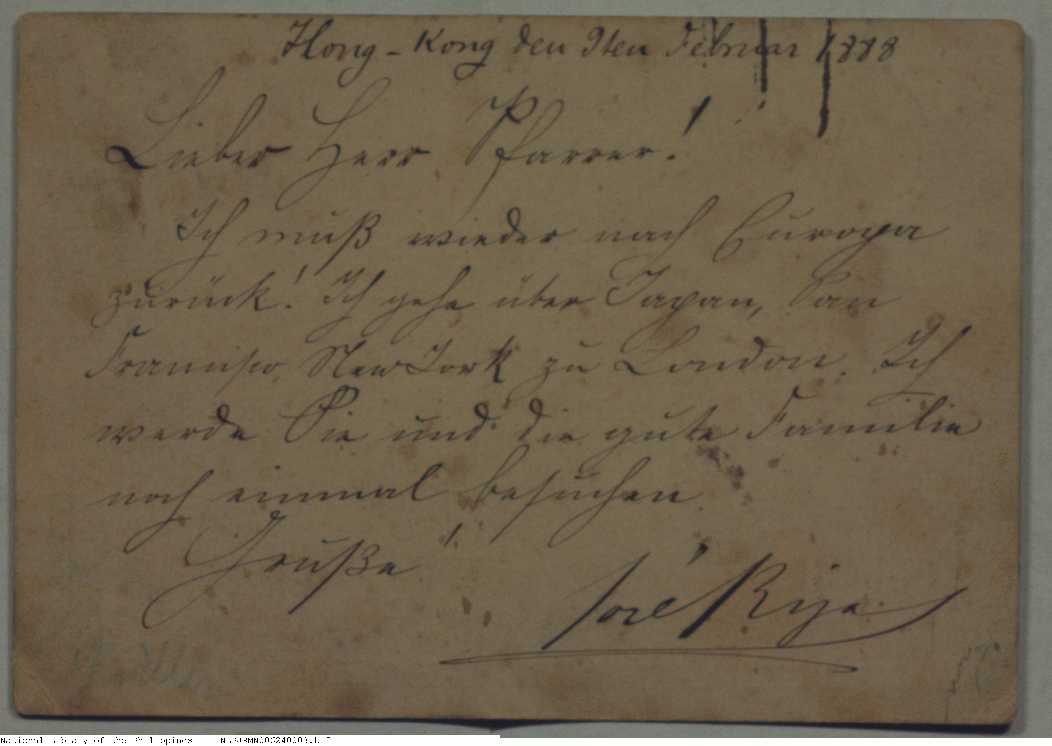 Hong-Kong den 9ten Februar 1888
Lieber Herr Pfarrer!
Ich muß wieder nach Europa
zurück! Ich gehe über Japan, San
Francisco, New York zu London. Ich
werde Sie und die gute Familie
noch einmal besuchen
Gruße!
José Riza
National Library of the Philippines